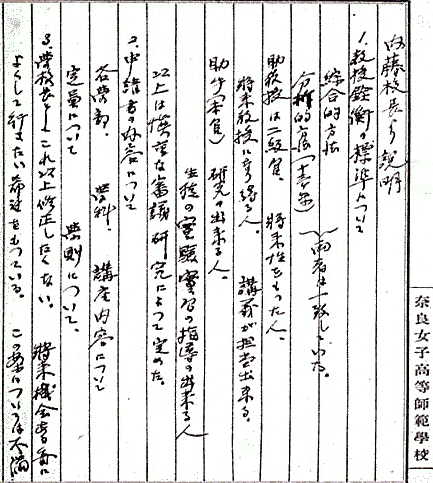 内藤校長より説明
1、教授銓衡の標準について
綜合的方法
分析的方法 両者は一致している。
助教授は二級官、将来性をもった人、
将来教授になり得る人。 講義が担当出来る。
助手(本官) 研究の出来る人。
生徒の実験実習の指導の出来る人
以上は慎重な審議研究によって定めた。
2、申請書の内容について
各学部、学科、講座内容について
定員について 学則について、
3、学校長としてこれ以上修正したくない。将来機会ある毎に
よくして行きたい希望をもっている。この案については不満
奈良女子高等師範學校